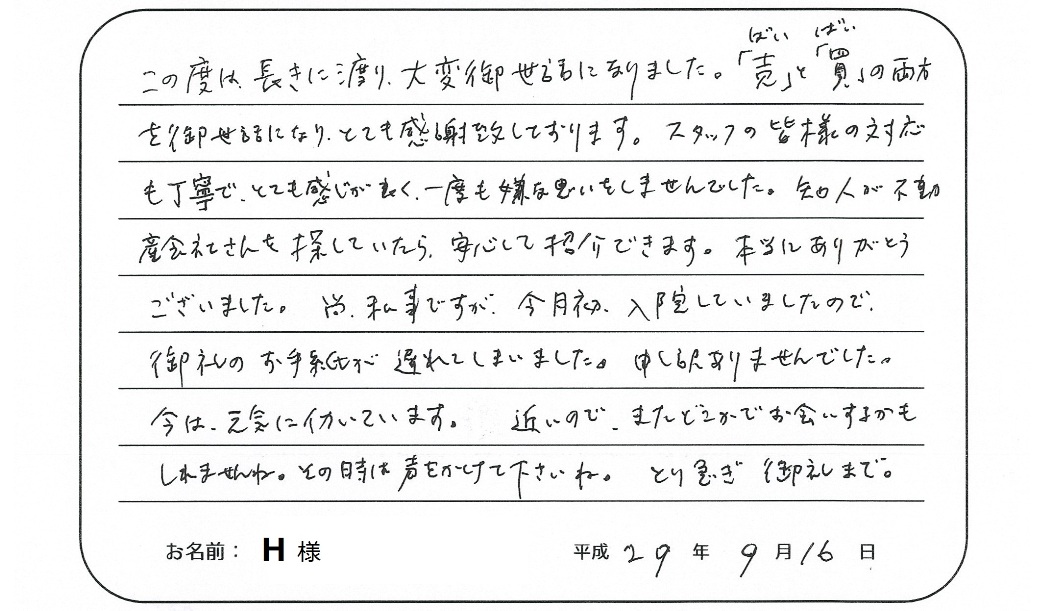 ばい ばい
この度は、長きに渡り、大変御世話になりました。「売」と「買」の両方
を御世話になり、とても感謝致しております。スタッフの皆様の対応
も丁寧で、とても感じが良く、一度も嫌な思いをしませんでした。知人が不動
産会社さんを探していたら、安心して紹介できます。本当にありがとう
ございました。尚、私事ですが、今月初、入院していましたので、
御礼のお手紙が遅れてしまいました。申し訳ありませんでした。
今は、元気に働いています。近いので、またどこかでお会いするかも
しれませんね。その時は声をかけて下さいね。とり急ぎ御礼まで。
お名前： H 様 平成 29 年 9 月 16 日